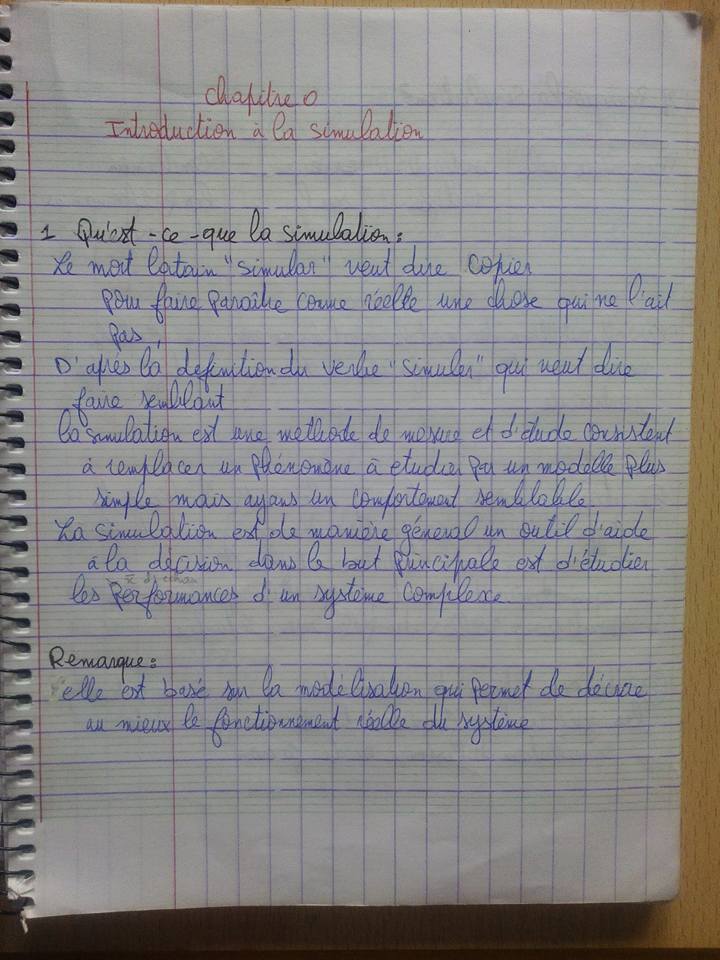 Chapitre 0
Introduction à la simulation
1 Qu'est-ce-que la simulation :
Le mort latain "simular" veut dire copier
pour faire paraître comme réelle une chose qui ne l'ait
pas,
D'après la définition du verbe "simuler" qui veut dire
faire semblant
la simulation est une méthode de mesure et d'étude consistent
à remplacer un phénomène à etudier par un modelle plus
simple mais ayans un comportement semblable
La simulation est de manière général un outil d'aide
à la décision dans le but principale est d'étudier
les performances d'un système complexe
Remarque :
elle est basé sur la modélisation qui permet de décrire
au mieux le fonctionnement réelle du système